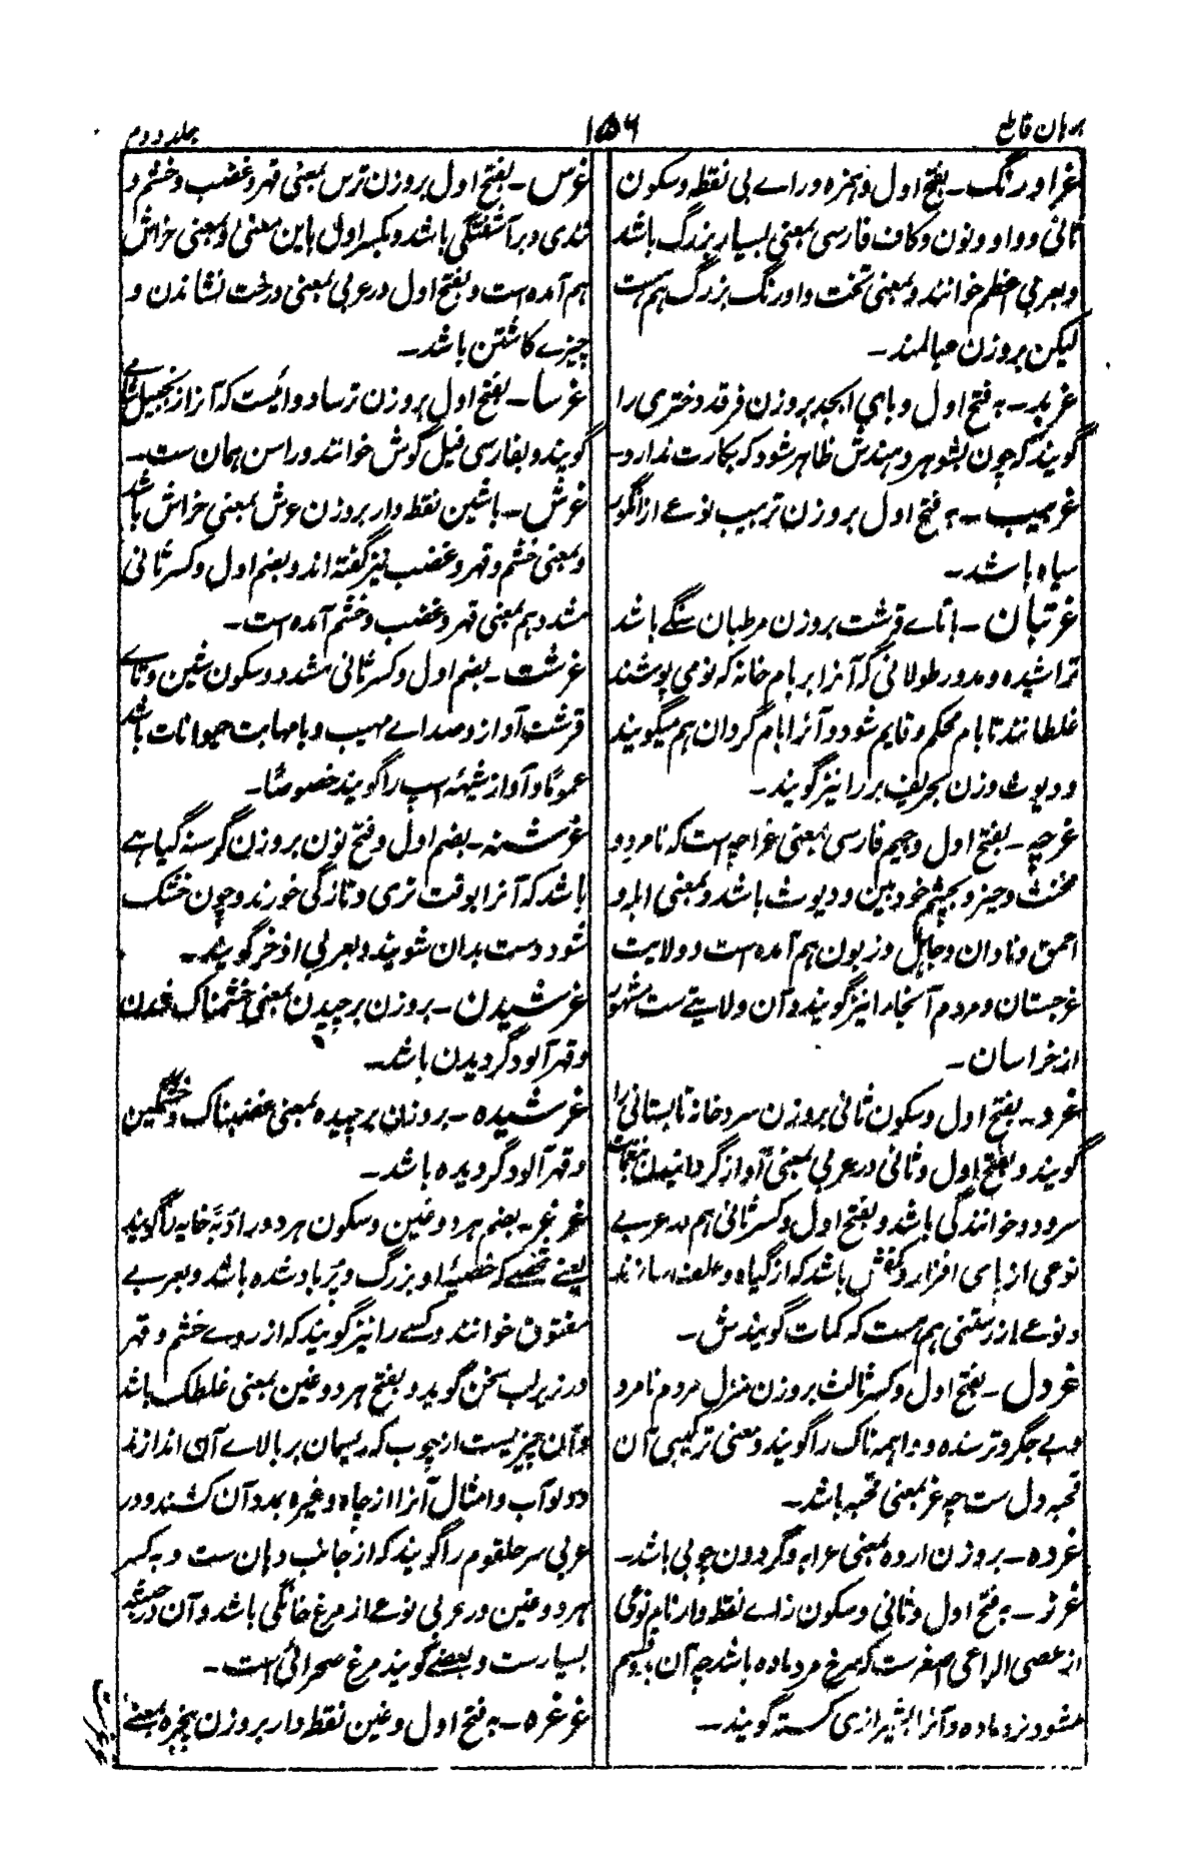 برهان قاطع
۱۵۶
جلد دوم
غراورنگ۔ بفتح اول و همزه و راے بی نقطه و سکون
ثانی و واو و نون و کاف فارسی بمعنی بسیار بزرگ باشد
و بعربی اعظم خوانند و بمعنی تخت و اورنگ بزرگ هم هست
لیکن بروزن حبالمند۔
غربد۔ به فتح اول و بای ابجد بروزن فرقد دختری را
گویند که چون بشوهر دهندش ظاهر شود که بکارت ندارد۔
غربیب۔ به فتح اول بروزن تربیب نوعے از انگور
سیاه باشد۔
غرتبان۔ باتاے قرشت بروزن مرطبان سنگے باشد
تراشیده و مدور طولانی که آنرا بر بام خانه که نو می پوشند
غلطانند تا بام محکم و قایم شود و آنرا بام گردان هم میگویند
و دیوث وزن بحریف بر را نیز گویند۔
غرچه۔ بفتح اول و جیم فارسی بمعنی غراچه است که نامرد و
مخنث و حیز و بچشم خود بین و دیوث باشد و بمعنی ابله و
احمق و نادان و جاهل و زبون هم آمده است و ولایت
غرجستان و مردم آنجا را نیز گویند و آن ولایتے ست مشهور
از خراسان۔
غرد۔ بفتح اول و سکون ثانی بروزن سرد خانه تابستانی را
گویند و بفتح اول و ثانی در عربی بمعنی آواز گردانیدن
سرود و خوانندگی باشد و بفتح اول و کسر ثانی هم در عربے
نوعی از پای افزار و کفش باشد که از گیاه و علف سازند
و نوعے از رستنی هم هست که کمات گویندش۔
غردل۔ بفتح اول و کسر ثالث بروزن منزل مردم نامرد
و بے جگر و ترسنده و واهمه ناک را گویند و معنی ترکیبی آن
قحبه دل ست چه غر بمعنی قحبه باشد۔
غرده۔ بروزن ارده بمعنی عرابه و گردون چوبی باشد۔
غرز۔ به فتح اول و ثانی و سکون زاے نقطه دار نام نوعی
از عصی الراعی اصغرست که سرخ مرد ماده باشد چه آن بدو قسم
میشود نر و ماده و آنرا بشیرازی کسته گویند۔
غرس۔ بفتح اول بروزن ترس بمعنی قهر و غضب و خشم و
تندی و بر آشفتگی باشد و بکسر اول باین معنی و بمعنی خراش
هم آمده است و بفتح اول در عربی بمعنی درخت نشاندن و
چیزے کاشتن باشد۔
غرسا۔ بفتح اول بروزن ترسا دوائیست که آنرا زنجبیل شامے
گویند و بفارسی فیل گوش خوانند و راسن همان ست۔
غرش۔ باشین نقطه دار بروزن عرش بمعنی خراش باشد
و بمعنی خشم و قهر و غضب نیز گفته اند و بضم اول و کسر ثانی
مشدد هم بمعنی قهر و غضب و خشم آمده است۔
غرشت۔ بضم اول و کسر ثانی مشدد و سکون شین و تاے
قرشت آواز و صداے مهیب و با مهابت حیوانات باشد
عموماً و آواز شیهه اسپ را گویند خصوصاً۔
غرشنه۔ بضم اول و فتح نون بروزن گرسنه گیاهے
باشد که آنرا بوقت تری و تازگی خورند و چون خشک
شود دست بدان شویند و بعربی اذخر گویند۔
غرشیدن۔ بروزن برچیدن بمعنی خشمناک شدن
و قهر آلود گردیدن باشد۔
غرشیده۔ بروزن برچیده بمعنی غضبناک و خشمگین
و قهر آلود گردیده باشد۔
غرغر۔ بضم هر دو غین و سکون هر دو را دبه خایه را گویند
یعنے شخصے که خصیه او بزرگ و پر باد شده باشد و بعربے
مفتون خوانند و کسے را نیز گویند که از روے خشم و قهر
در زیر لب سخن گوید و بفتح هر دو غین بمعنی غلطک باشد
و آن چیزیست از چوب که ریسمان بر بالاے آن اندازند
و دلو آب و امثال آنرا از چاه و غیره بمدد آن کشند و در
عربی سر حلقوم را گویند که از جانب دهان ست و به کسر
هر دو غین در عربی نوعے از مرغ خانگی باشد و آن در حبشه
بسیارست و بعضے گویند مرغ صحرائی است۔
غرغره۔ به فتح اول و غین نقطه دار بروزن پنجره بمعنے